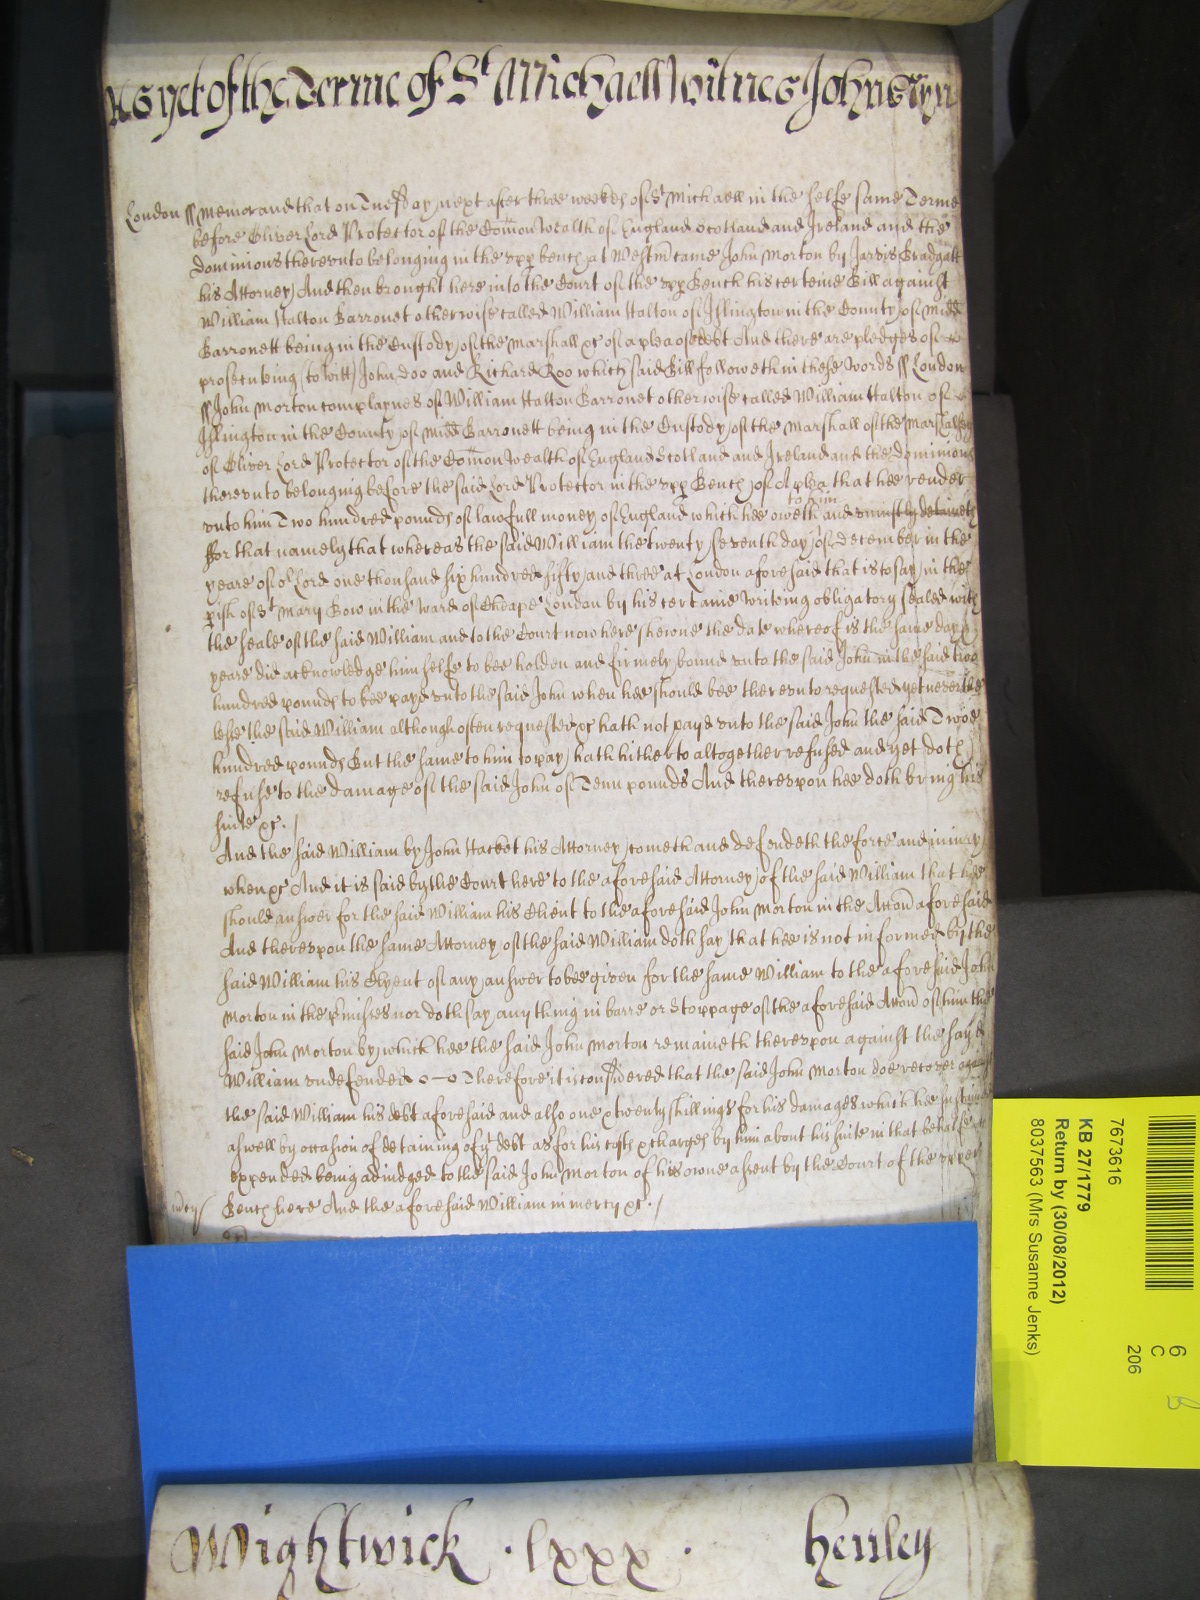 As yet of the Terme of St Michaell Witnes John Glyn
London ss Memorand that on Tuesday next after three weekes of St Michaell in the selfe same Terme
before Oliver Lord Protector of the Comon Wealth of England Scotland and Ireland and the
dominions therevnto belonging in the vpp bench at Westm came John Morton by Jarvis Bradgatt
his Attorney And then brought here into the Court of the vpp Bench his certeine Bill against
William Halton Barronet otherwise called William Halton of Islington in the County of Midd
Barronett being in the Custody of the Marshall &c of a plea of debt And there are pledges of
prosecuting (to witt) John Doo and Richard Roo which said Bill followeth in these words ss London
ss John Morton complaynes of William Halton Barronet otherwise called William Halton of
Islington in the County of Midd Barronett being in the Custody of the Marshall of the Marshalsey
of Oliver Lord Protector of the Comon wealth of England Scotland and Ireland and the dominions
therevnto belonging before the said Lord Protector in the vpp Bench of A plea that hee render
vnto him Two hundred pounds of lawfull money of England which hee oweth to him and vniustly detaineth
For that namely that whereas the said William the twenty seventh day of December in the
yeare of or Lord one thousand six hundred fifty and three at London aforesaid that is to say in the
pish of St Mary Bow in the ward of Cheape London by his certaine writing obligatory sealed with
the seale of the said William and to the Court now here shewne the date whereof is the same day &
yeare did acknowledge himselfe to bee holden and firmely bound vnto the said John in the said two
hundred pounds to bee payd vnto the said John when hee should bee therevnto requested yet neverthe
lesse the said William although often requested &c hath not payd vnto the said John the said Twoe
hundred pounds But the same to him to pay hath hitherto altogether refused and yet doth
refuse to the damage of the said John of Tenn pounds And therevpon hee doth bring his
suite &c.
And the said William by John Hacket his Attorney cometh and defendeth the force and iniury
when &c And it is said by the Court here to the aforesaid Attorney of the said William that hee
should answer for the said William his Client to the aforesaid John Morton in the Accon aforesaid
And therevpon the same Attorney of the said William doth say that hee is not informed by the
said William his Clyent of any answer to bee given for the same William to the aforesaid John
Morton in the p'misses nor doth say any thing in barre or stoppage of the aforesaid Accon of him the
said John Morton by which hee the said John Morton remaineth therevpon against the sayd
William vndefended Therefore it is considered that the said John Morton doe recover against
the said William his debt aforesaid and also one & twenty shillings for his damages which hee sustained
aswell by occasion of detaining of ye debt as for his costs & charges by him about his suite in that behalfe
expended being adiudged to the said John Morton of his owne assent by the Court of the vpper
Bench here And the aforesaid William in mercy &c.
mcy
Wightwick · lxxx · Henley
7673616
KB 27/1779
Return by (30/08/2012)
8037563 (Mrs Susanne Jenks)
6
C
206